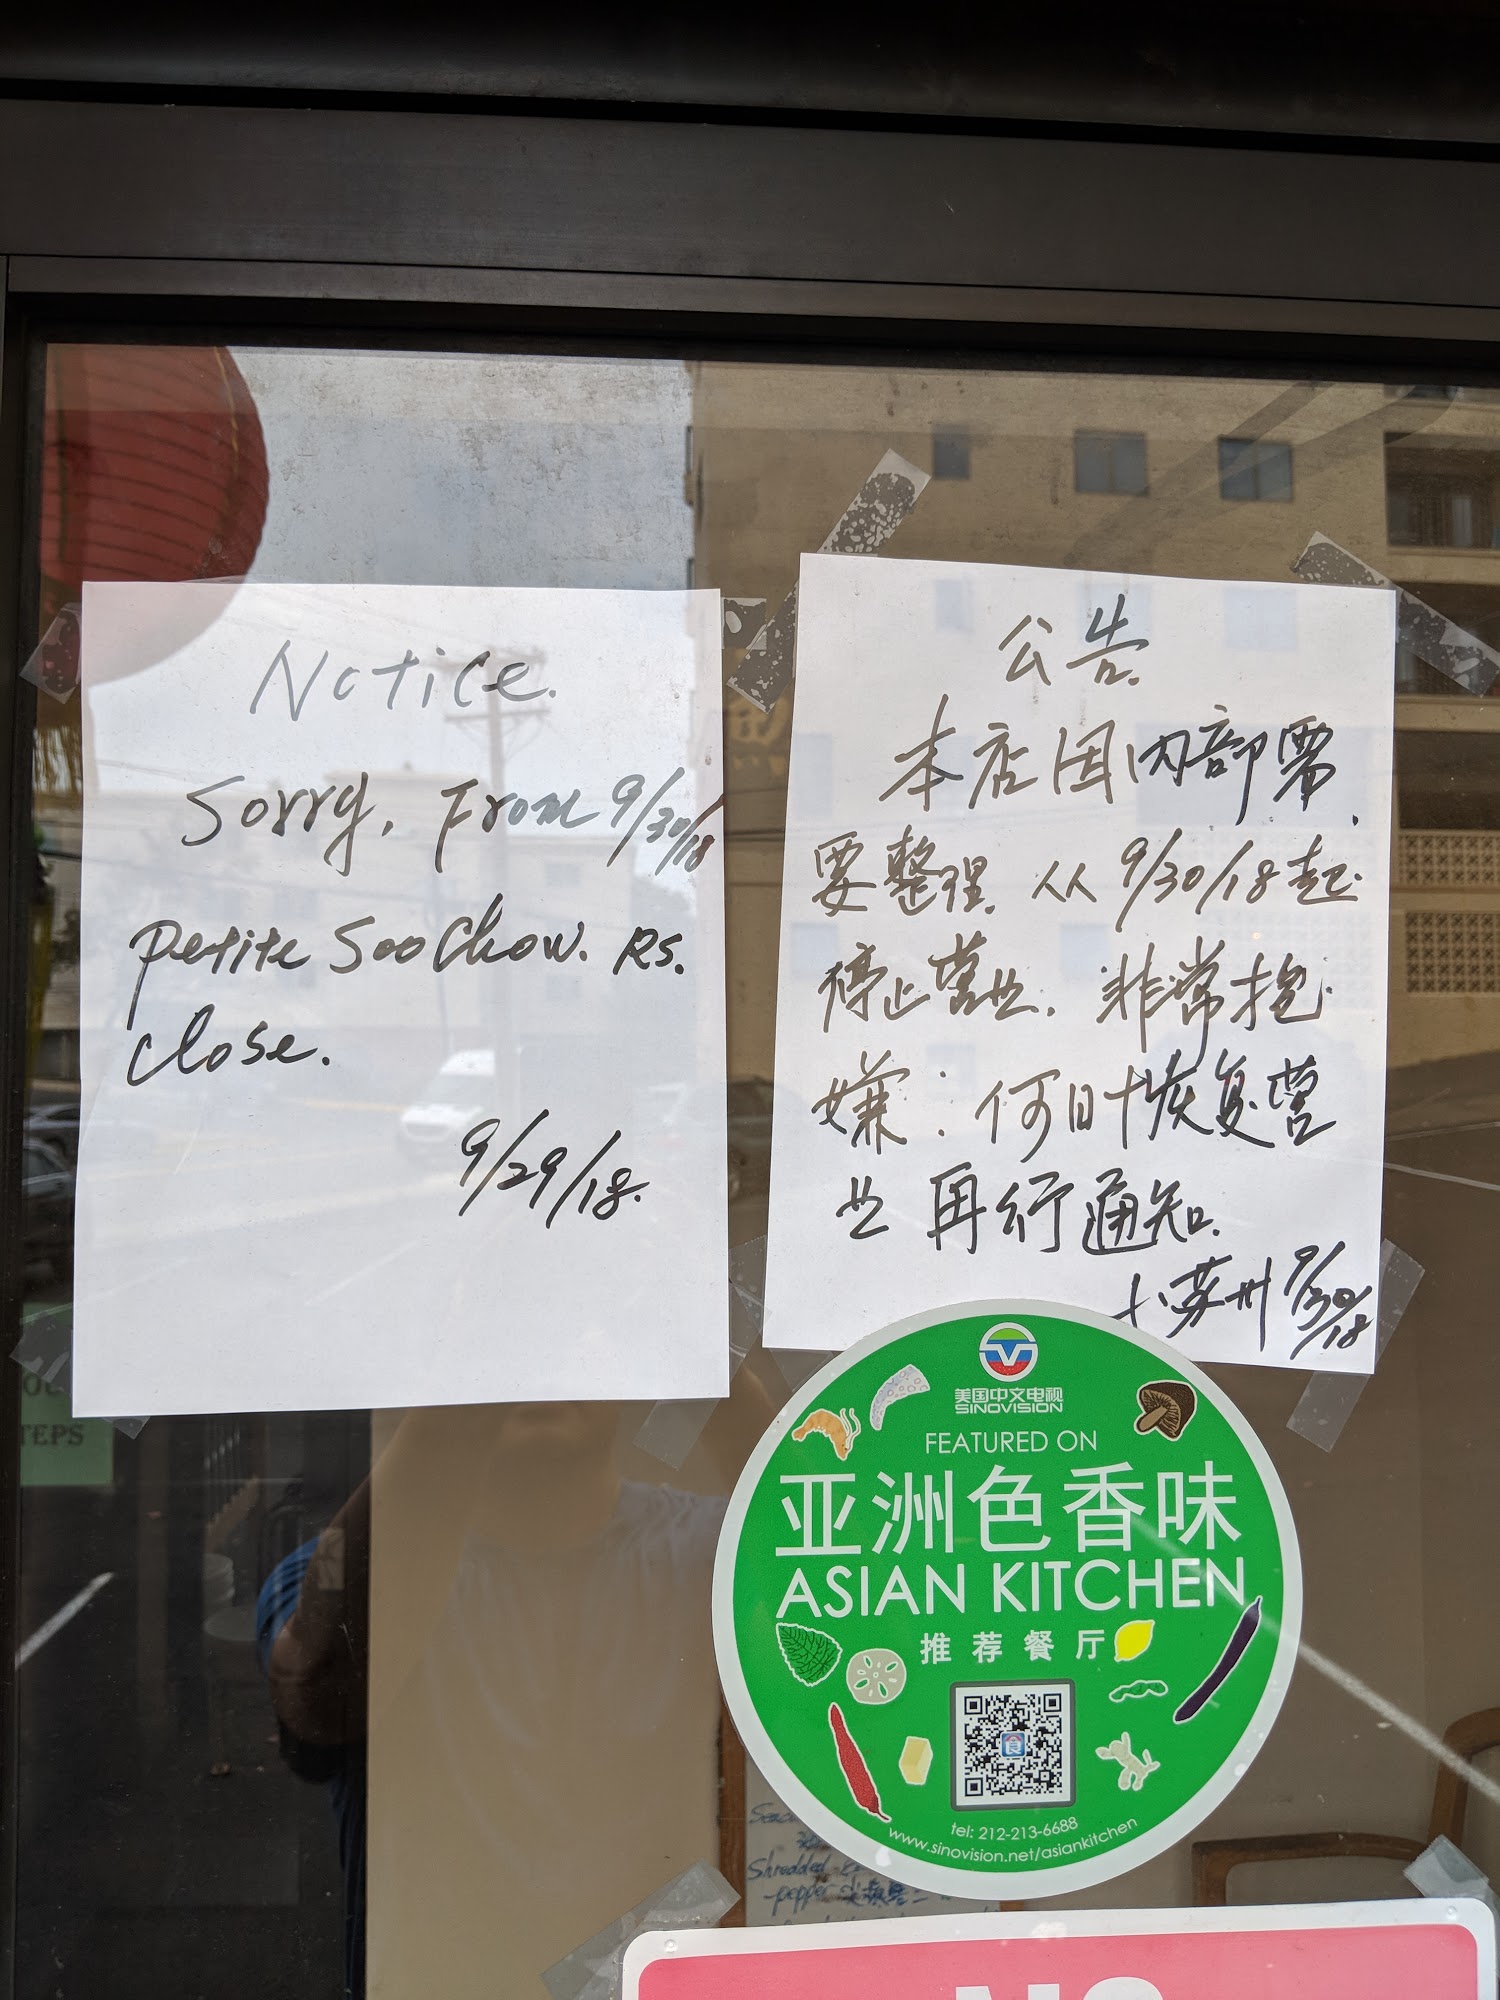 Notice.
Sorry, From 9/30/18
Petite Soo Chow. RS.
Close.
9/29/18.
公告.
本店因内部需
要整理. 从 9/30/18 起
停止营业. 非常抱
嫌: 何时恢复营
业 再行通知.
小苏州 9/30/18
美国中文电视
SINOVISION
FEATURED ON
亚洲色香味
ASIAN KITCHEN
推荐餐厅
食
tel: 212-213-6688
www.sinovision.net/asiankitchen
TEPS
Shredded
pepper
NO